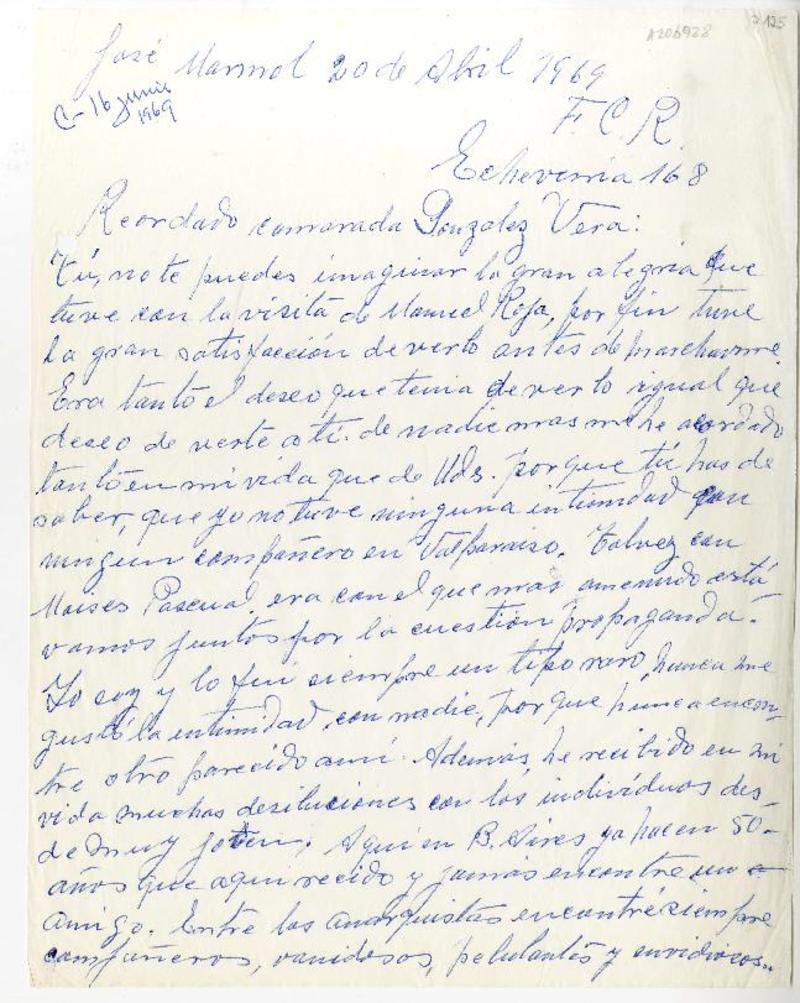 A206928
2125
José Marmol 20 de Abril 1969
C-16 junio
1969
F. C. R.
Echeverria 168
Recordado camarada Gonzalez Vera:
Tú, no te puedes imaginar la gran alegria que
tuve con la visita de Manuel Roja, por fin tuve
la gran satisfacción de verlo antes de marcharme.
Era tanto el deseo que tenia de verlo igual que
deseo de verte a ti. de nadie mas me he acordado
tanto en mi vida que de Uds. porque tú has de
saber, que yo no tuve ninguna intimidad con
ningun compañero en Valparaiso. Talvez con
Moises Pascual, era con el que mas amenudo está-
vamos juntos por la cuestion propaganda.
Yo soy y lo fui siempre un tipo raro, nunca me
gustó la intimidad con nadie, porque nunca encon-
tre otro parecido a mi. Además, he recibido en mi
vida muchas desiluciones con los individuos des-
de muy joven. Aqui en B. Aires ya hacen 50-
años que aqui recido y jamás encontre un
amigo. Entre los anarquistas encontré siempre
compañeros, vanidosos, petulantes y envidiosos..